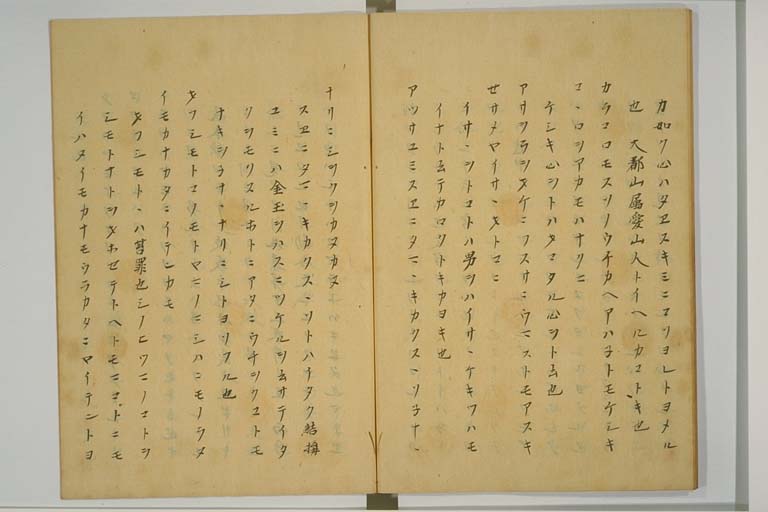 カ如ク心ハタヱスキミニヨリヨレトヨメル
也 大郡山届愛山人トイヘルカコトキ也
カラコロモスソノウチカヘアハ子トモケシキ
コヽロヲアカモハナクニ
ケシキ心ヲトハタマタル心ヲト云也
アサヲラヲヲケニフスサニウマストモアスキ
せサメヤイサヽヲトコニ
イサヽヲトコトハ男ヲハイサヽケキワハモ
イナト云テカロ トキカヨキ也
アツサユミスヱニタマヽキカクスヽソ子ナヽ
ナリニシヲクヲカヌカヌ
スヱニタマヽキカクスヽソトハチタク結構
ユミニハ金玉ヲハスニツケルヲ云サテイタ
クヲモリスルホトニアタニウチヲクコトモ
ナキヲチサヽナリニシトヨソフル也
オフシモトコノモトヤマノマシハニモノラヌ
イモカナカタニイテンカモ
オフシモトヽハ笞罪也シノヒツマノコトヲ
シモトオトシオホセテトヘトモマコトニモ
イハヌイモカナモウラカタニマイテントヨ